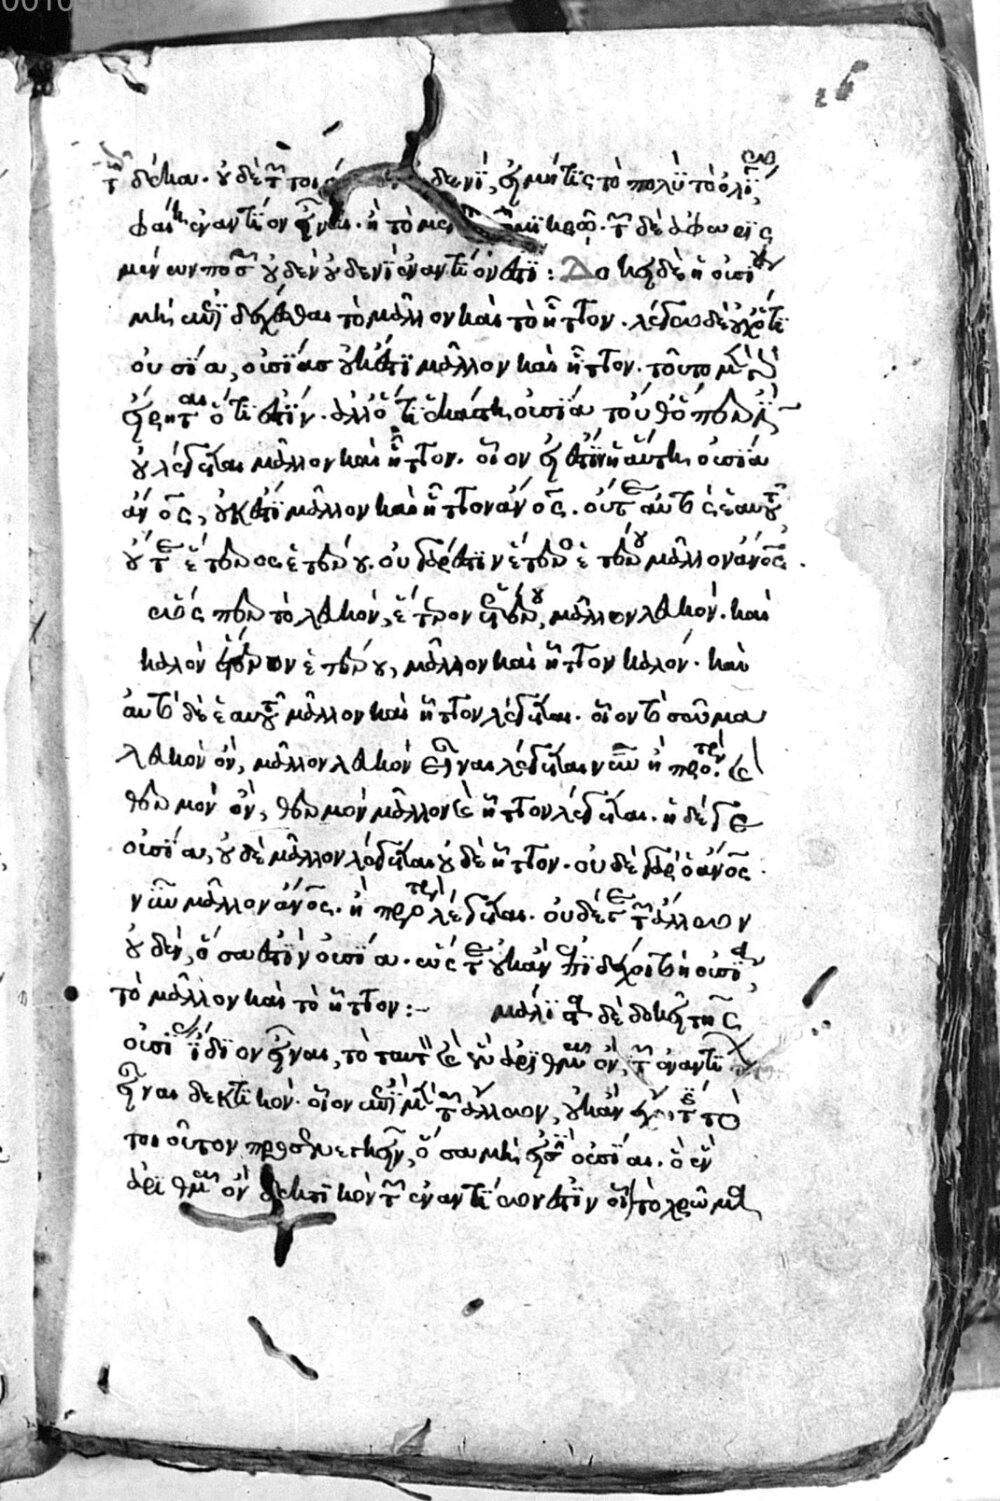 τῶ δέκα. οὐδὲ τῶν τοιού δενί, εἰ μή τις τὸ πολὺ τῶ ὀλίγω
φαίη ἐναντίον εἶναι. ἢ τὸ μέγα μικρῶ. τῶν δὲ ἀφωρις
μένων ποσῶν οὐδὲν οὐδενὶ ἐναντίον ἐστι: Δοκεῖ δὲ ἡ οὐσία
μὴ ἐπιδέχεσθαι τὸ μᾶλλον καὶ τὸ ἧττον. λέγω δὲ οὐχ ὅτι
οὐσία, οὐσίας οὐκ ἔστι μᾶλλον καὶ ἧττον. τοῦτο μὲν γὰρ
εἴρηται ὅτι ἐστίν. ἀλλ' ὅτι ἑκάστη οὐσία τοῦθ' ὅπερ ἐστὶν
οὐ λέγεται μᾶλλον καὶ ἧττον. οἷον εἰ ἔστιν ἡ αὕτη οὐσία
ἄνος, οὐκ ἔστι μᾶλλον καὶ ἧττον ἄνος. οὔτε αὐτὸς ἑαυτοῦ
οὔτε ἕτερος ἑτέρου. οὐ γάρ ἐστιν ἕτερος ἑτέρου μᾶλλον ἄνος.
ὥσπερ τὸ λευκόν, ἕτερον ἑτέρου, μᾶλλον λευκόν. καὶ
καλὸν ἕτερον ἑτέρου, μᾶλλον καὶ ἧττον καλόν. καὶ
αὐτὸ δὲ ἑαυτοῦ μᾶλλον καὶ ἧττον λέγεται. οἷον τὸ σῶμα
λευκὸν ὄν, μᾶλλον λευκὸν εἶναι λέγεται νῦν ἢ πρότερον. καὶ
θερμὸν ὄν, θερμὸν μᾶλλον καὶ ἧττον λέγεται. ἡ δέ γε
οὐσία, οὐδὲ μᾶλλον λέγεται οὐδὲ ἧττον. οὐδὲ γὰρ ὁ ἄνος
νῦν μᾶλλον ἄνος. ἢ πρότερον λέγεται. οὐδέ γε τῶν ἄλλων
οὐδέν, ὅσα ἐστὶν οὐσία. ὥστε οὐκ ἂν ἐπιδέχοιτο ἡ οὐσία,
τὸ μᾶλλον καὶ τὸ ἧττον:- μάλιστα δὲ δοκεῖ τῆς
οὐσίας ἴδιον εἶναι, τὸ ταυτὸν καὶ ἓν ἀριθμῶ ὄν, τῶν ἐναντίων
εἶναι δεκτικόν. οἷον ἐπὶ μὲν τῶν ἄλλων, οὐκ ἂν ἔχοι τὶς τὸ
τοιοῦτον προσενεγκεῖν, ὅσα μή εἰσιν οὐσίαι. ὃ ἓν
ἀριθμῶ ὂν δεκτικὸν τῶν ἐναντίων ἐστίν οἷον τὸ χρῶμα